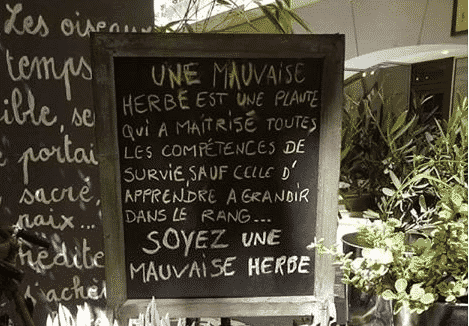 Les oiseaux
temps
ible, se
portai
sacré,
paix...
médite
s'achet
UNE MAUVAISE
HERBE EST UNE PLANTE
QUI A MAITRISÉ TOUTES
LES COMPÉTENCES DE
SURVIE, SAUF CELLE D'
APPRENDRE A GRANDIR
DANS LE RANG...
SOYEZ UNE
MAUVAISE HERBE